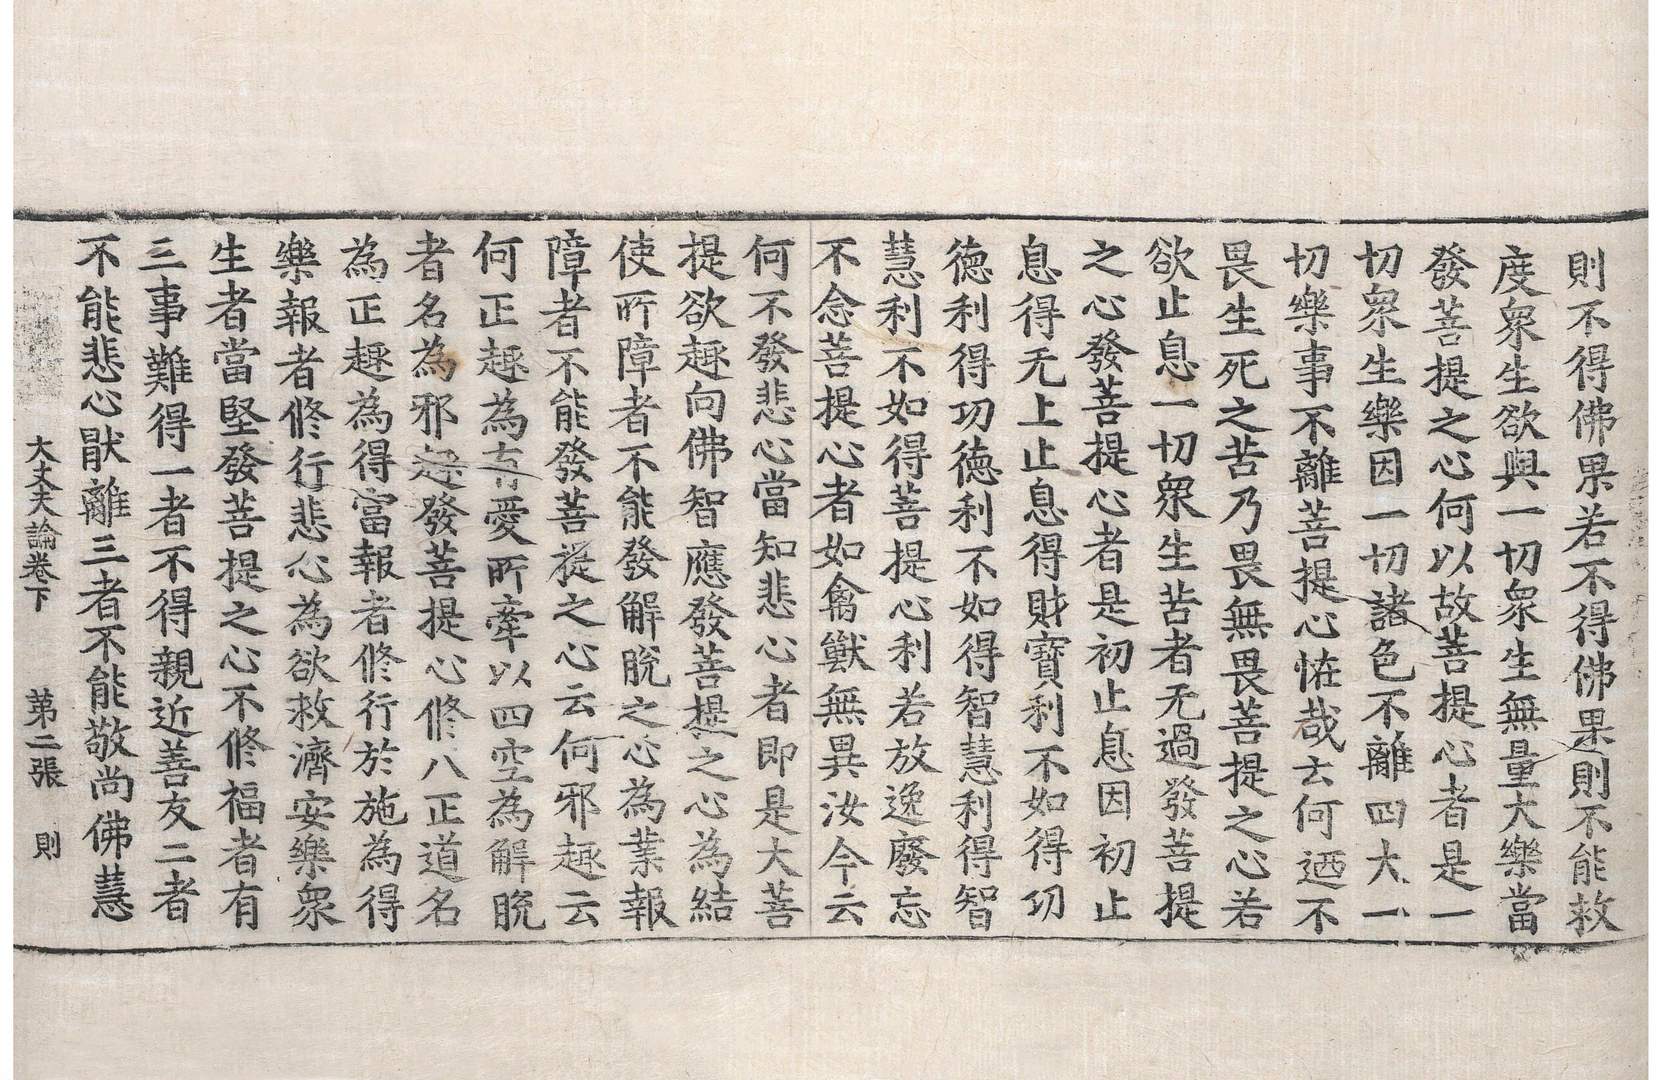 則不得佛果若不得佛果則不能救
度衆生欲與一切衆生無量大樂當
發菩提之心何以故菩提心者是一
切衆生樂因一切諸色不離四大一
切樂事不離菩提心恠哉云何迺不
畏生死之苦乃畏無畏菩提之心若
欲止息一切衆生苦者无過發菩提
之心發菩提心者是初止息因初止
息得无上止息得財寶利不如得功
德利得功德利不如得智慧利得智
慧利不如得菩提心利若放逸廢忘
不念菩提心者如禽獸無異汝今云
何不發悲心當知悲心者即是大菩
提欲趣向佛智應發菩提之心為結
使所障者不能發解脫之心為業報
障者不能發菩提之心云何邪趣云
何正趣為有愛所牽以四空為解脫
者名為邪趣發菩提心修八正道名
為正趣為得富報者修行於施為得
樂報者修行悲心為欲救濟安樂衆
生者當堅發菩提之心不修福者有
三事難得一者不得親近善友二者
不能悲心猒離三者不能敬尚佛慧
大丈夫論卷下 第二張 則